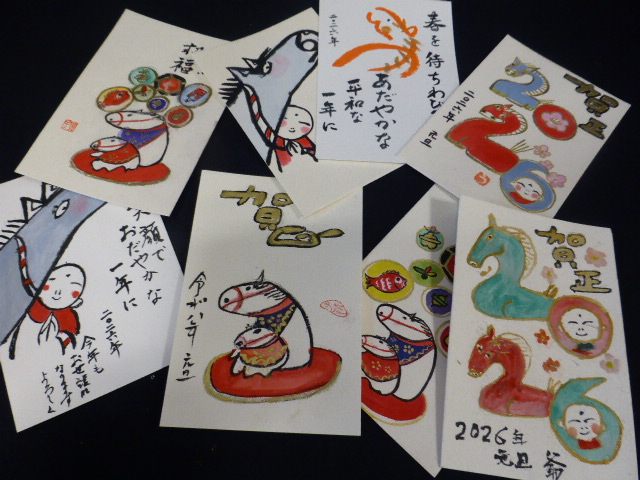 祝福
春を待ちわび
おだやかな
平和な
一年に
二〇二六年
賀正
2026
二〇二六年 元旦
顔で
おだやかな
一年に
二〇二六年
今年も
お世話に
なります
よろしく
賀正
令和八年 元旦
賀正
2026
2026年
元旦